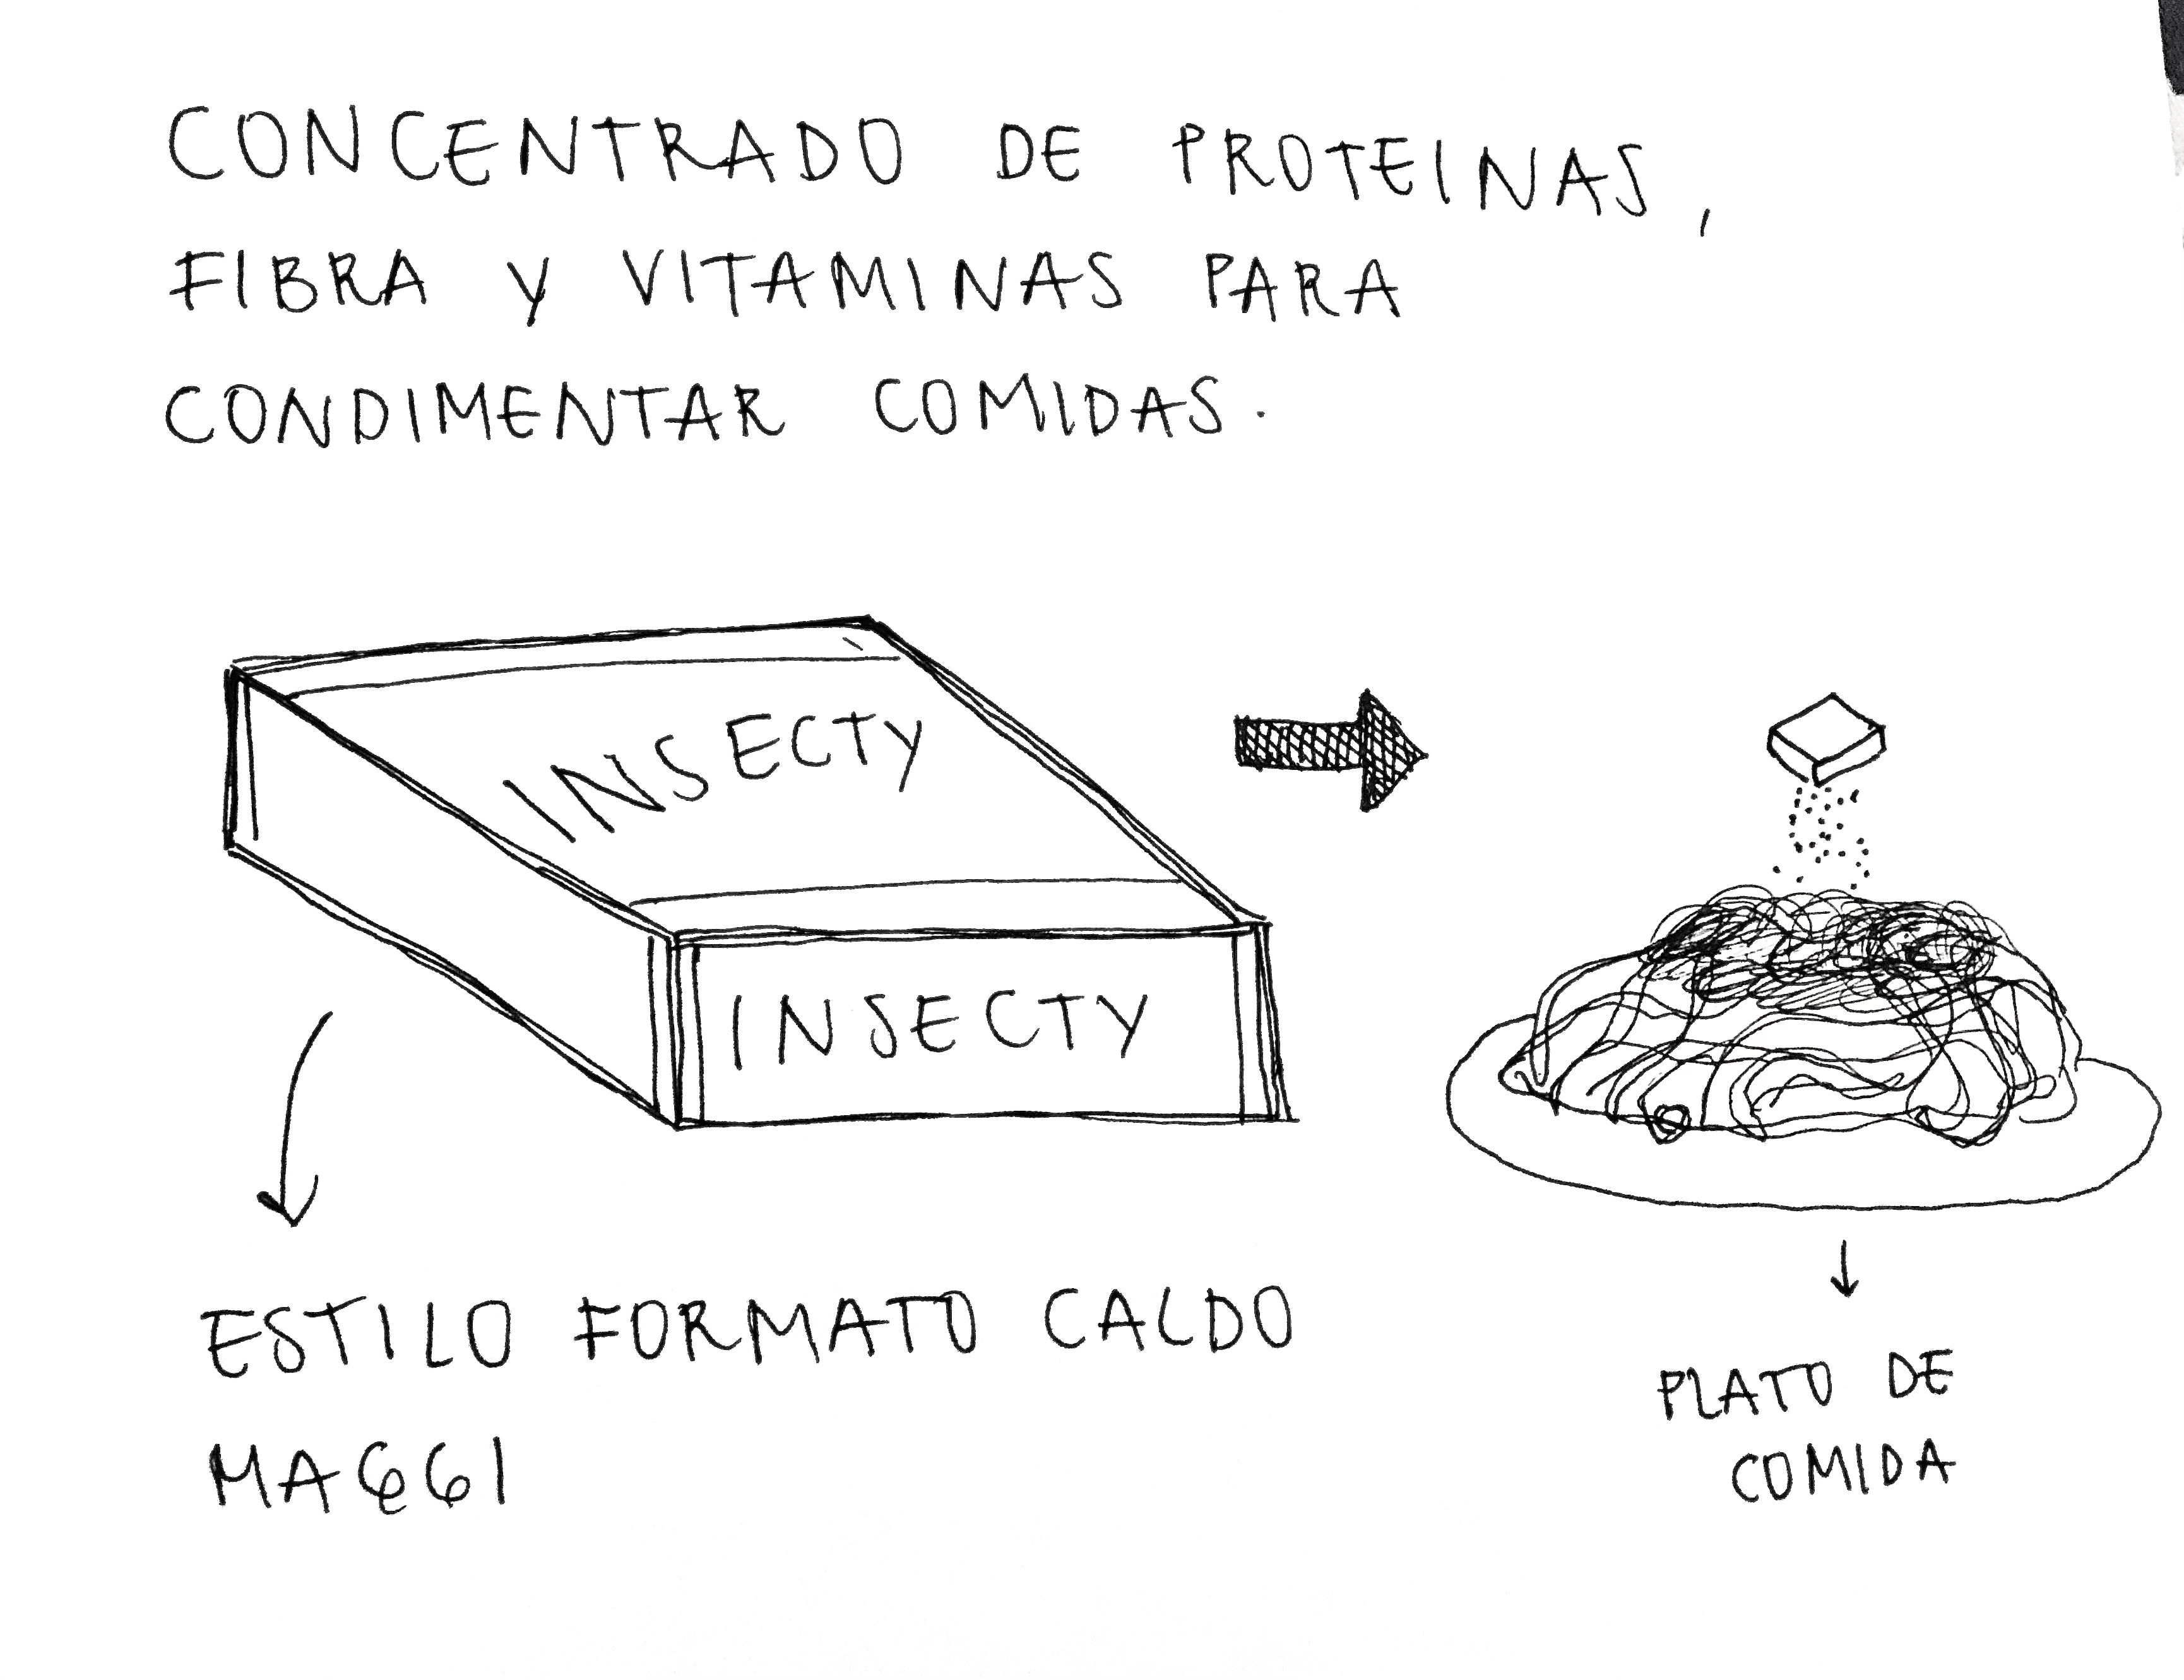 CONCENTRADO DE PROTEINAS,
FIBRA Y VITAMINAS PARA
CONDIMENTAR COMIDAS.
INSECTY
INSECTY
ESTILO FORMATO CALDO
MAGGI
PLATO DE
COMIDA